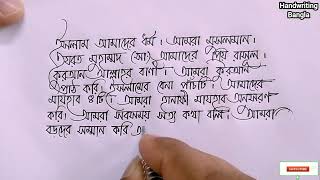 Handwriting
Bangla
ইসলাম আমাদের ধর্ম। আমরা মুসলমান।
হযরত মুহাম্মদ (সাঃ) আমাদের প্রিয় রাসূল।
কুরআন আল্লাহর বাণী। আমরা কুরআন
পাঠ করি। ইসলামের বেনা পাঁচটি। আমাদের
মাযহাব ৪টি। আমরা হানাফী মাযহাব অনুসরণ
করি। আমরা সবসময় সত্য কথা বলি। আমরা
বড়দের সম্মান করি এ
SUBSCRIBE